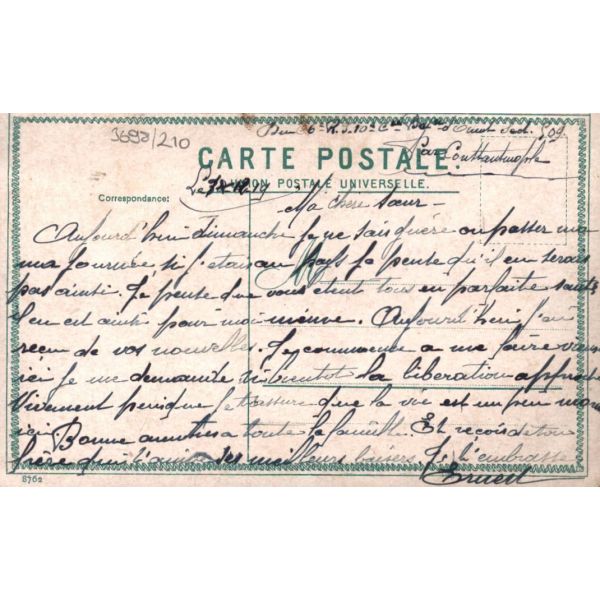 3698/210
Par Constantinople
CARTE POSTALE.
UNION POSTALE UNIVERSELLE.
Correspondance:
Ma chère sœur
Aujourd'hui dimanche je ne sais guère ou passer ma
ma journée si j'étais au Pays je pense qu'il en serais
pas ainsi. Je pense que vous etent tous en parfaite santé
il en est ainsi pour moi meme. Aujourd'hui j'ai
recu de vos nouvelles. Je commence a me faire vieux
ici je me demande si bientot la liberation approche
Vivement puisque je t'assure que la vie est un peu mono
ici Bonne amitiés a toute la famille. Et recois de ton
frère qui t'aime ses meilleurs baisers. Je t'embrasse
Ernest
8762